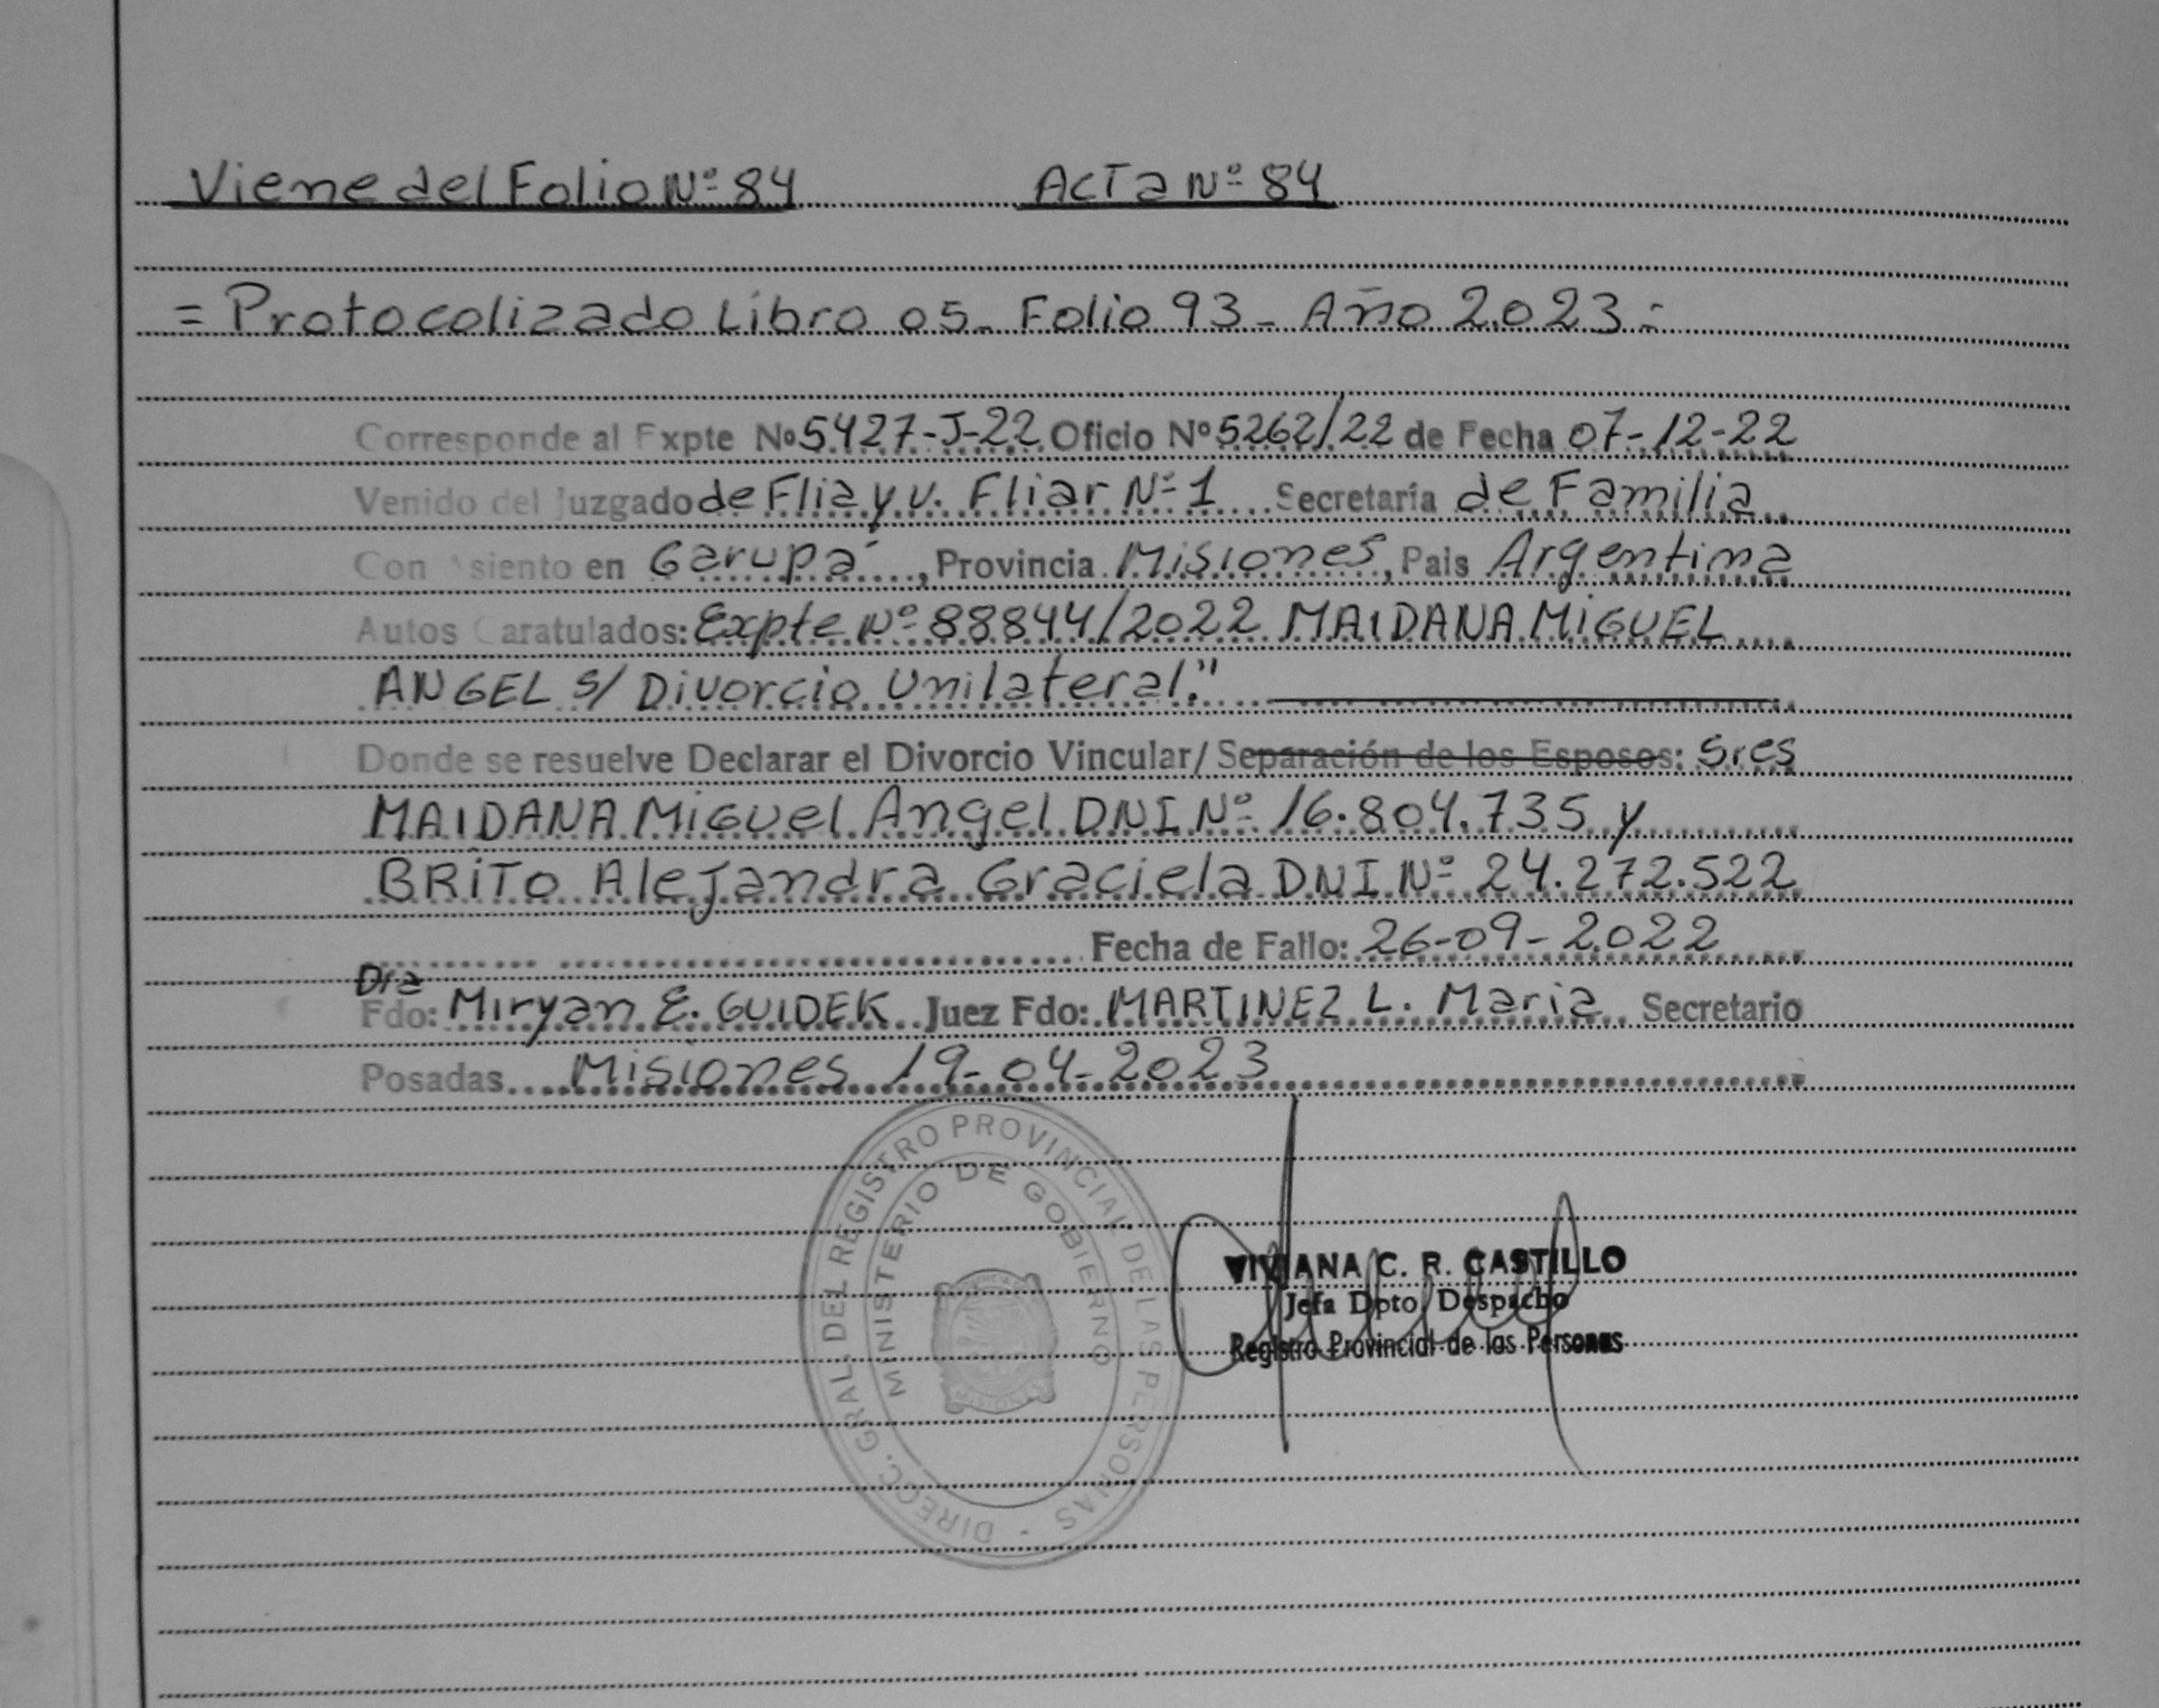 Viene del Folio Nº 84 Acta Nº 84
= Protocolizado Libro 05_ Folio 93_ Año 2.023 =
Corresponde al Expte Nº 5427-J-22 Oficio Nº 5262/22 de Fecha 07-12-22
Venido del Juzgado de Flia y v. Fliar Nº 1 Secretaría de Familia
Con siento en Garupá, Provincia Misiones, Pais Argentina
Autos Caratulados: Expte Nº 88844/2022 MAIDANA MiGUEL
ANGEL s/ Divorcio Unilateral."
Donde se resuelve Declarar el Divorcio Vincular/ Separación de los Esposos: Sres
MAIDANA Miguel Angel DNI Nº 16.804.735 y
BRiTo Alejandra Graciela DNI Nº 24.272.522
Fecha de Fallo: 26-09-2.022
Dra
Fdo: Miryan E. GUIDEK Juez Fdo: MARTINEZ L. Maria Secretario
Posadas Misiones 19-04-2023
DIRECC. GRAL. DEL REGISTRO PROVINCIAL DE LAS PERSONAS
MINISTERIO DE GOBIERNO
VIVIANA C. R. CASTILLO
Jefa Dpto. Despacho
Registro Provincial de las Personas